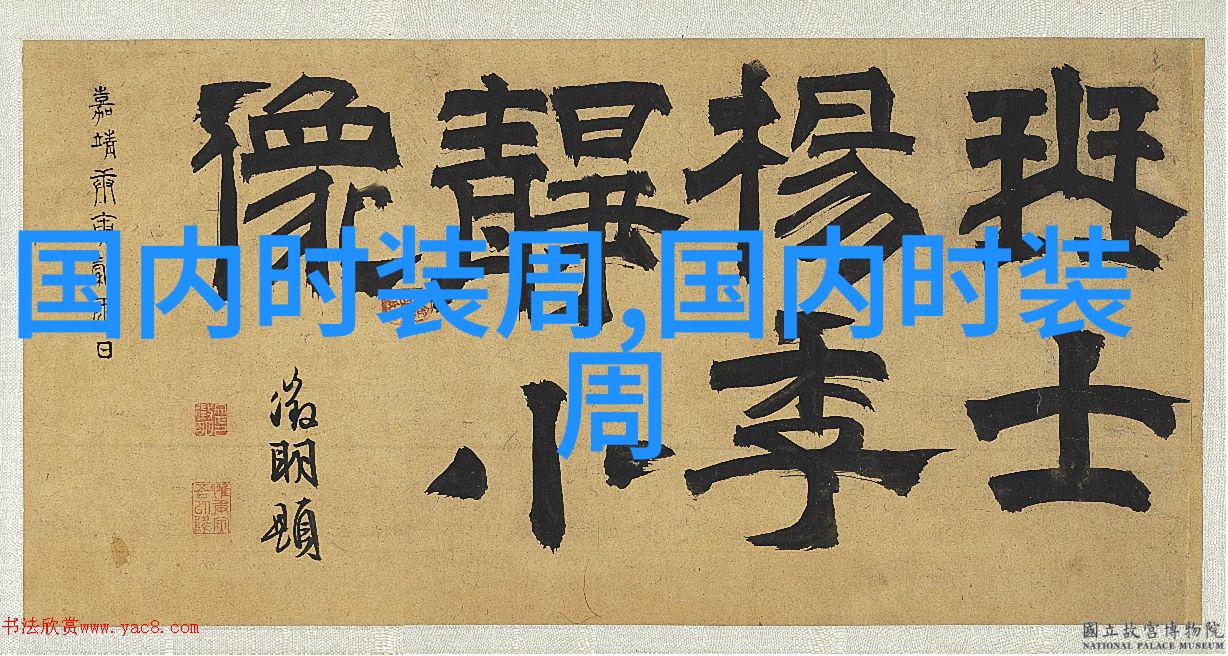 国内时装周,国内时装
周
班士
楊季
靜小
像
徵明題
嘉靖庚寅
日
书法欣赏www.yac8.com
國立故宮博物院
NATIONAL PALACE MUSEUM